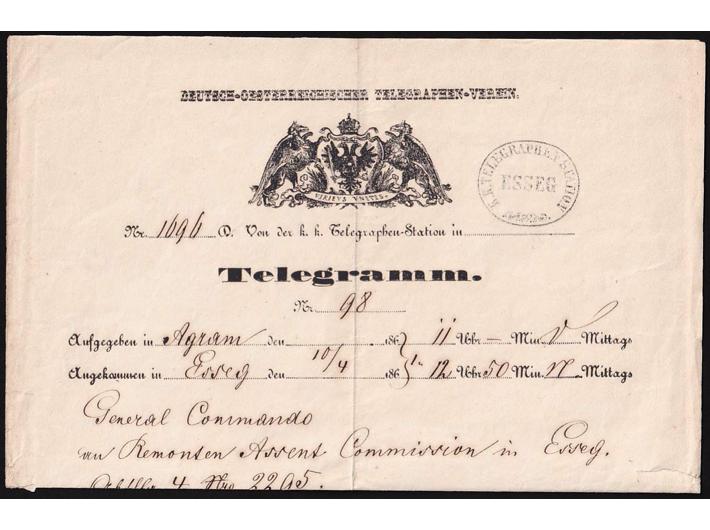 DEUTSCH-OESTERREICHISCHER TELEGRAPHEN-VEREIN.
VIRIBVS VNITIS.
K.K. TELEGRAPHEN STATION
ESSEG
Nr. 1696 D. Von der k. k. Telegraphen-Station in
Telegramm.
Nr. 98
Aufgegeben in Agram den 186 11 Uhr — Min. V Mittags
Angekommen in Esseg den 10/4 186 12 Uhr 50 Min. N Mittags
General Commando
an Remonten Assent Commission in Esseg.
4 Nro 2295.